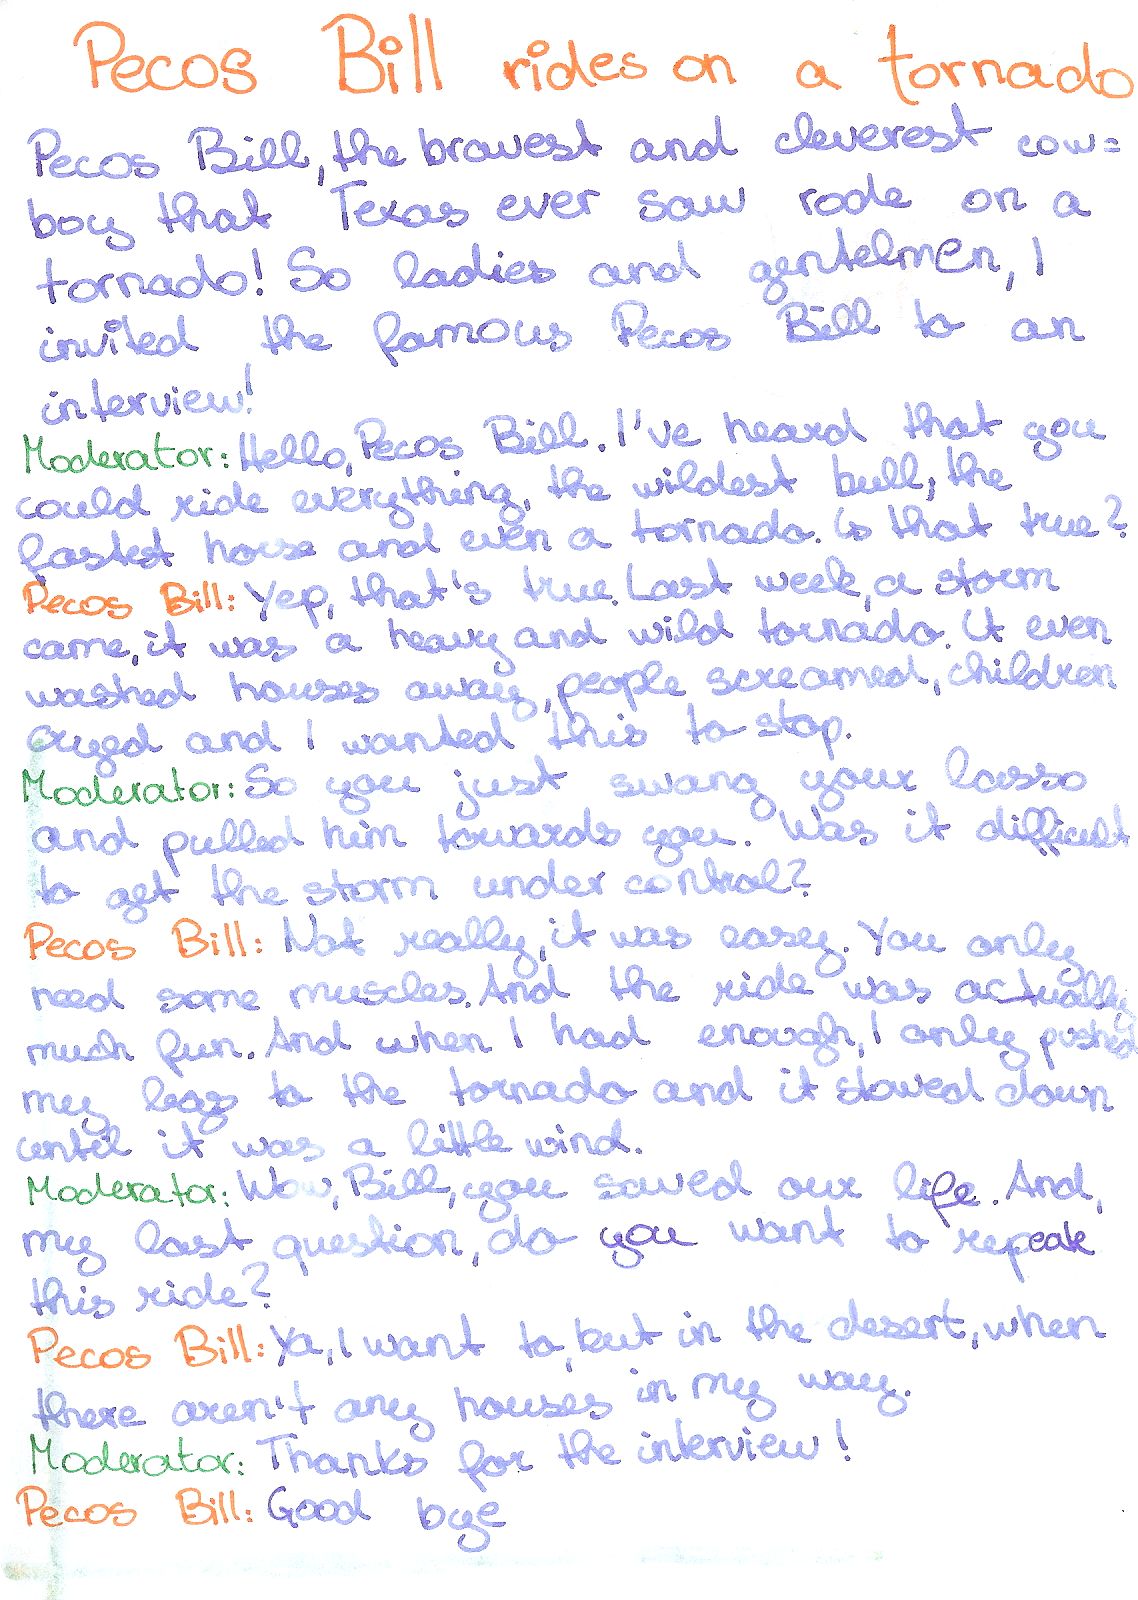 Pecos Bill rides on a tornado
Pecos Bill, the bravest and cleverest cow=
boy that Texas ever saw rode on a
tornado! So ladies and gentelmen, I
invited the famous Pecos Bill to an
interview!
Moderator: Hello, Pecos Bill. I've heard that you
could ride everything, the wildest bull, the
fastest horse and even a tornado. Is that true?
Pecos Bill: Yep, that's true. Last week, a storm
came, it was a heavy and wild tornado. It even
washed houses away, people screamed, children
cryed and I wanted this to stop.
Moderator: So you just swang your lasso
and pulled him towards you. Was it difficult
to get the storm under control?
Pecos Bill: Not really, it was easy. You only
need some muscles. And the ride was actually
much fun. And when I had enough, I only pushed
my legs to the tornado and it slowed down
until it was a little wind.
Moderator: Wow, Bill, you saved our life. And,
my last question, do you want to repeate
this ride?
Pecos Bill: Ya, I want to, but in the desert, when
there aren't any houses in my way.
Moderator: Thanks for the interview!
Pecos Bill: Good bye